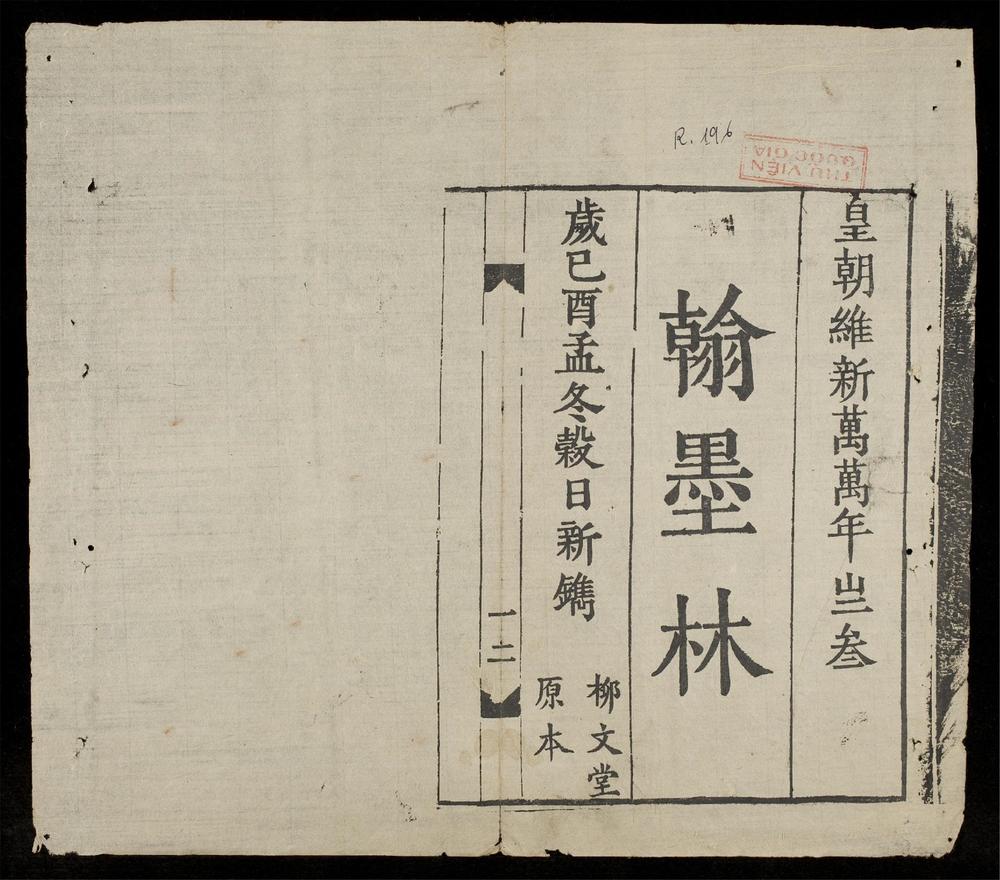 R. 196
THƯ VIỆN
QUỐC GIA
皇朝維新萬萬年㞢叁
翰墨林
歲已酉孟冬穀日新鐫
柳文堂
原本
一二